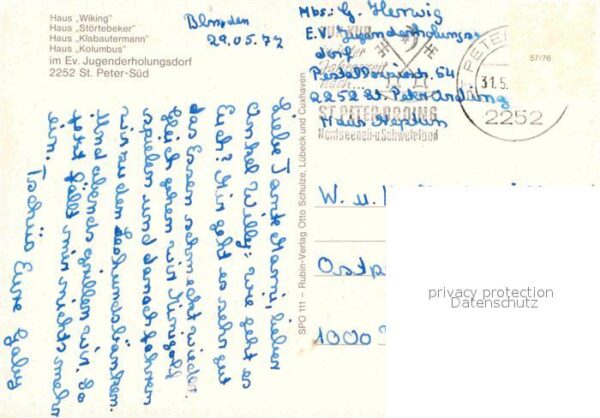 Haus „Wiking"
Haus „Störtebeker"
Haus „Klabautermann"
Haus „Kolumbus"
im Ev. Jugenderholungsdorf
2252 St. Peter-Süd
29.05.77
Mbs.: G. Herwig
E.V. Jugenderholungs
dorf
Pestalozzistr. 54
2252 St. Peter Ording
Haus Neptun
ST. PETER-ORDING
Nordseeheil- u. Schwefelbad
57/76
31.5.
2252
Liebe Tante Mami, lieber
Onkel Willy: wie geht es
Euch? Mir geht es sehr gut
das Essen schmeckt wieder.
Gleich gehen wir Minigolf
spielen und danach fahren
wir zu den Seehundsbänken.
Und abends grillen wir. So
jetzt fällt mir nichts mehr
ein. Tschüß Eure Gaby
SPO 111 – Rubin-Verlag Otto Schulze, Lübeck und Cuxhaven
W. u.
Ostp
1000
privacy protection
Datenschutz